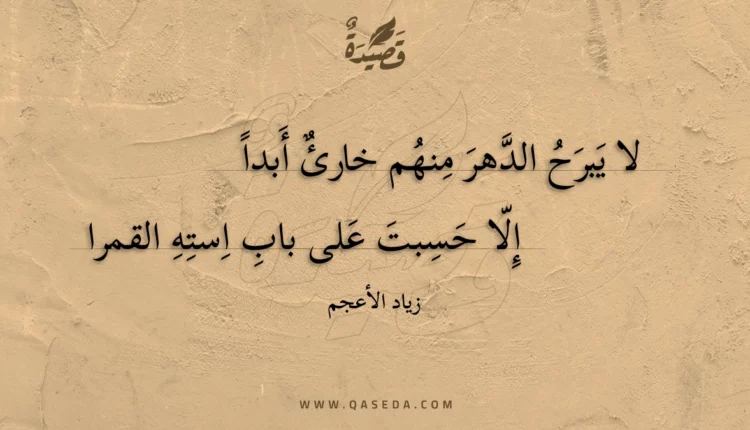 قَصِيْدَةٌ
لا يَبرَحُ الدَّهرَ مِنهُم خارئٌ أَبداً
إِلّا حَسِبتَ عَلى بابِ اِستِهِ القمرا
زياد الأعجم
WWW.QASEDA.COM